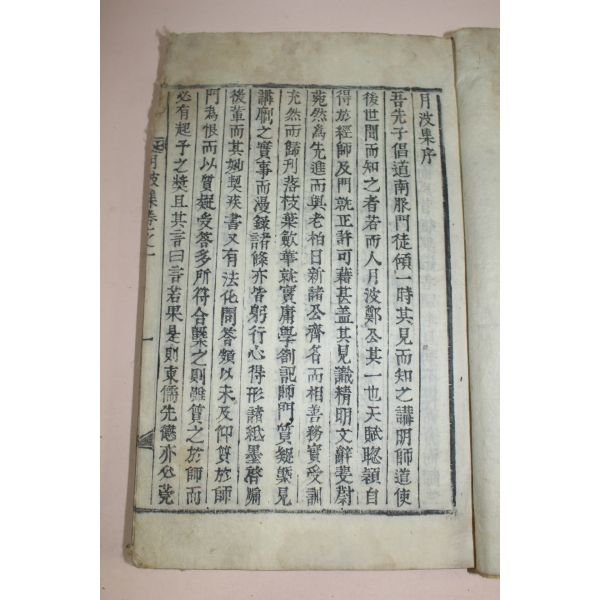 月波集序
吾先子倡道南服門徒傾一時其見而知之講明師道使
後世聞而知之者若而人月波鄭公其一也天賦聰穎自
得於經師及門就正許可藉甚盖其見識精明文辭蔚
菀然爲先進而與老柏日新諸公齊名而相善務實受訓
充然而歸刊落枝葉歛華就實庸學劄記師門質疑槩見
講劘之實事而漫錄諸條亦皆躬行心得形諸紙墨啓牖
後輩而其契疾書又有法化問答類以未及仰質於師
門爲恨而以質疑受答多所符合槩之則雖質之於師而
必有起予之奬且其言曰言若果是則東儒先懲亦
月波集卷之一
一